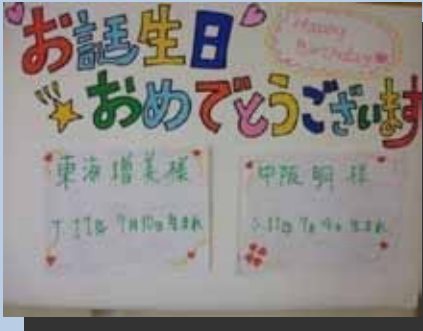 お誕生日
Happy
Birthday
おめでとうございます
東海 増美様
中阪 明 様
7月10日 生まれ
生まれ